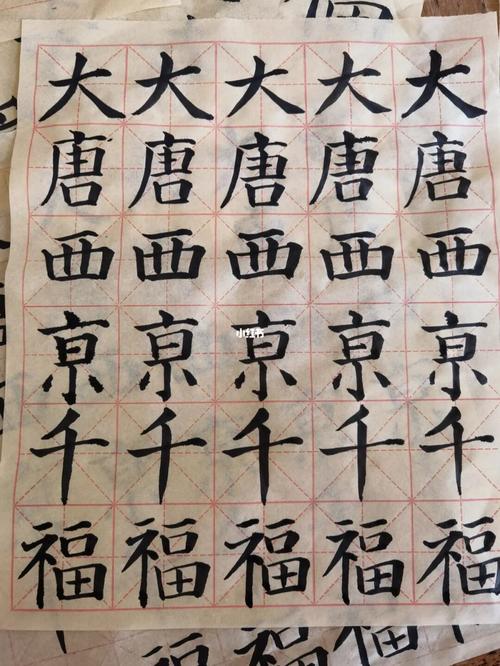 大大大大大
唐唐唐唐唐
西西西西西
亰亰亰亰亰
小红书
千千千千千
福福福福福